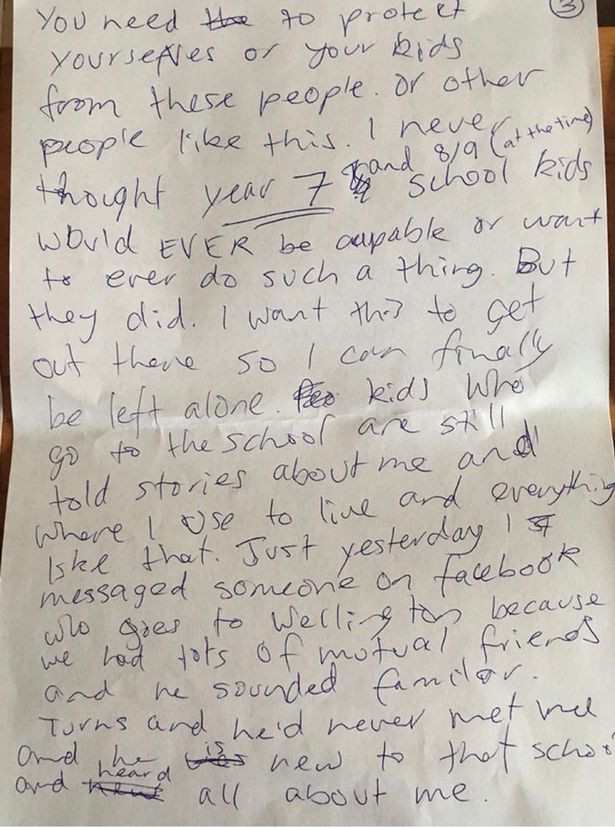 3
You need the to protect
yourselves or your kids
from these people. Or other
people like this. I never
thought year 7 and 8/9 (at the time) school kids
would EVER be capable or want
to ever do such a thing. But
they did. I want this to get
out there so I can finally
be left alone. kids who
go to the school are still
told stories about me and
where I use to live and everything
like that. Just yesterday I
messaged someone on facebook
who goes to Wellington because
we had lots of mutual friends
and he sounded familar.
Turns and he'd never met me
and he is new to that school
and heard all about me.